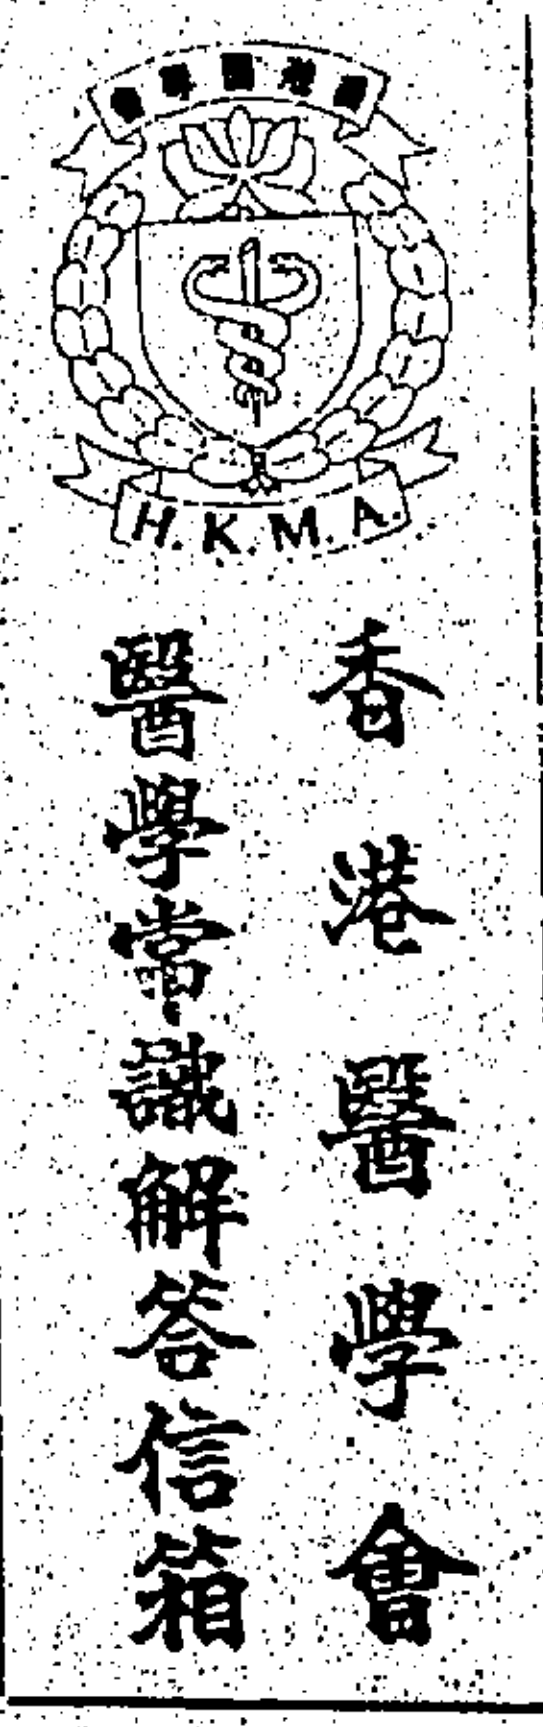 香港醫學會
H.K.M.A.
香港醫學會
醫學常識解答信箱